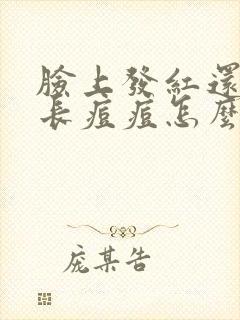 臉上發紅還
長痘痘怎麼
庞某告